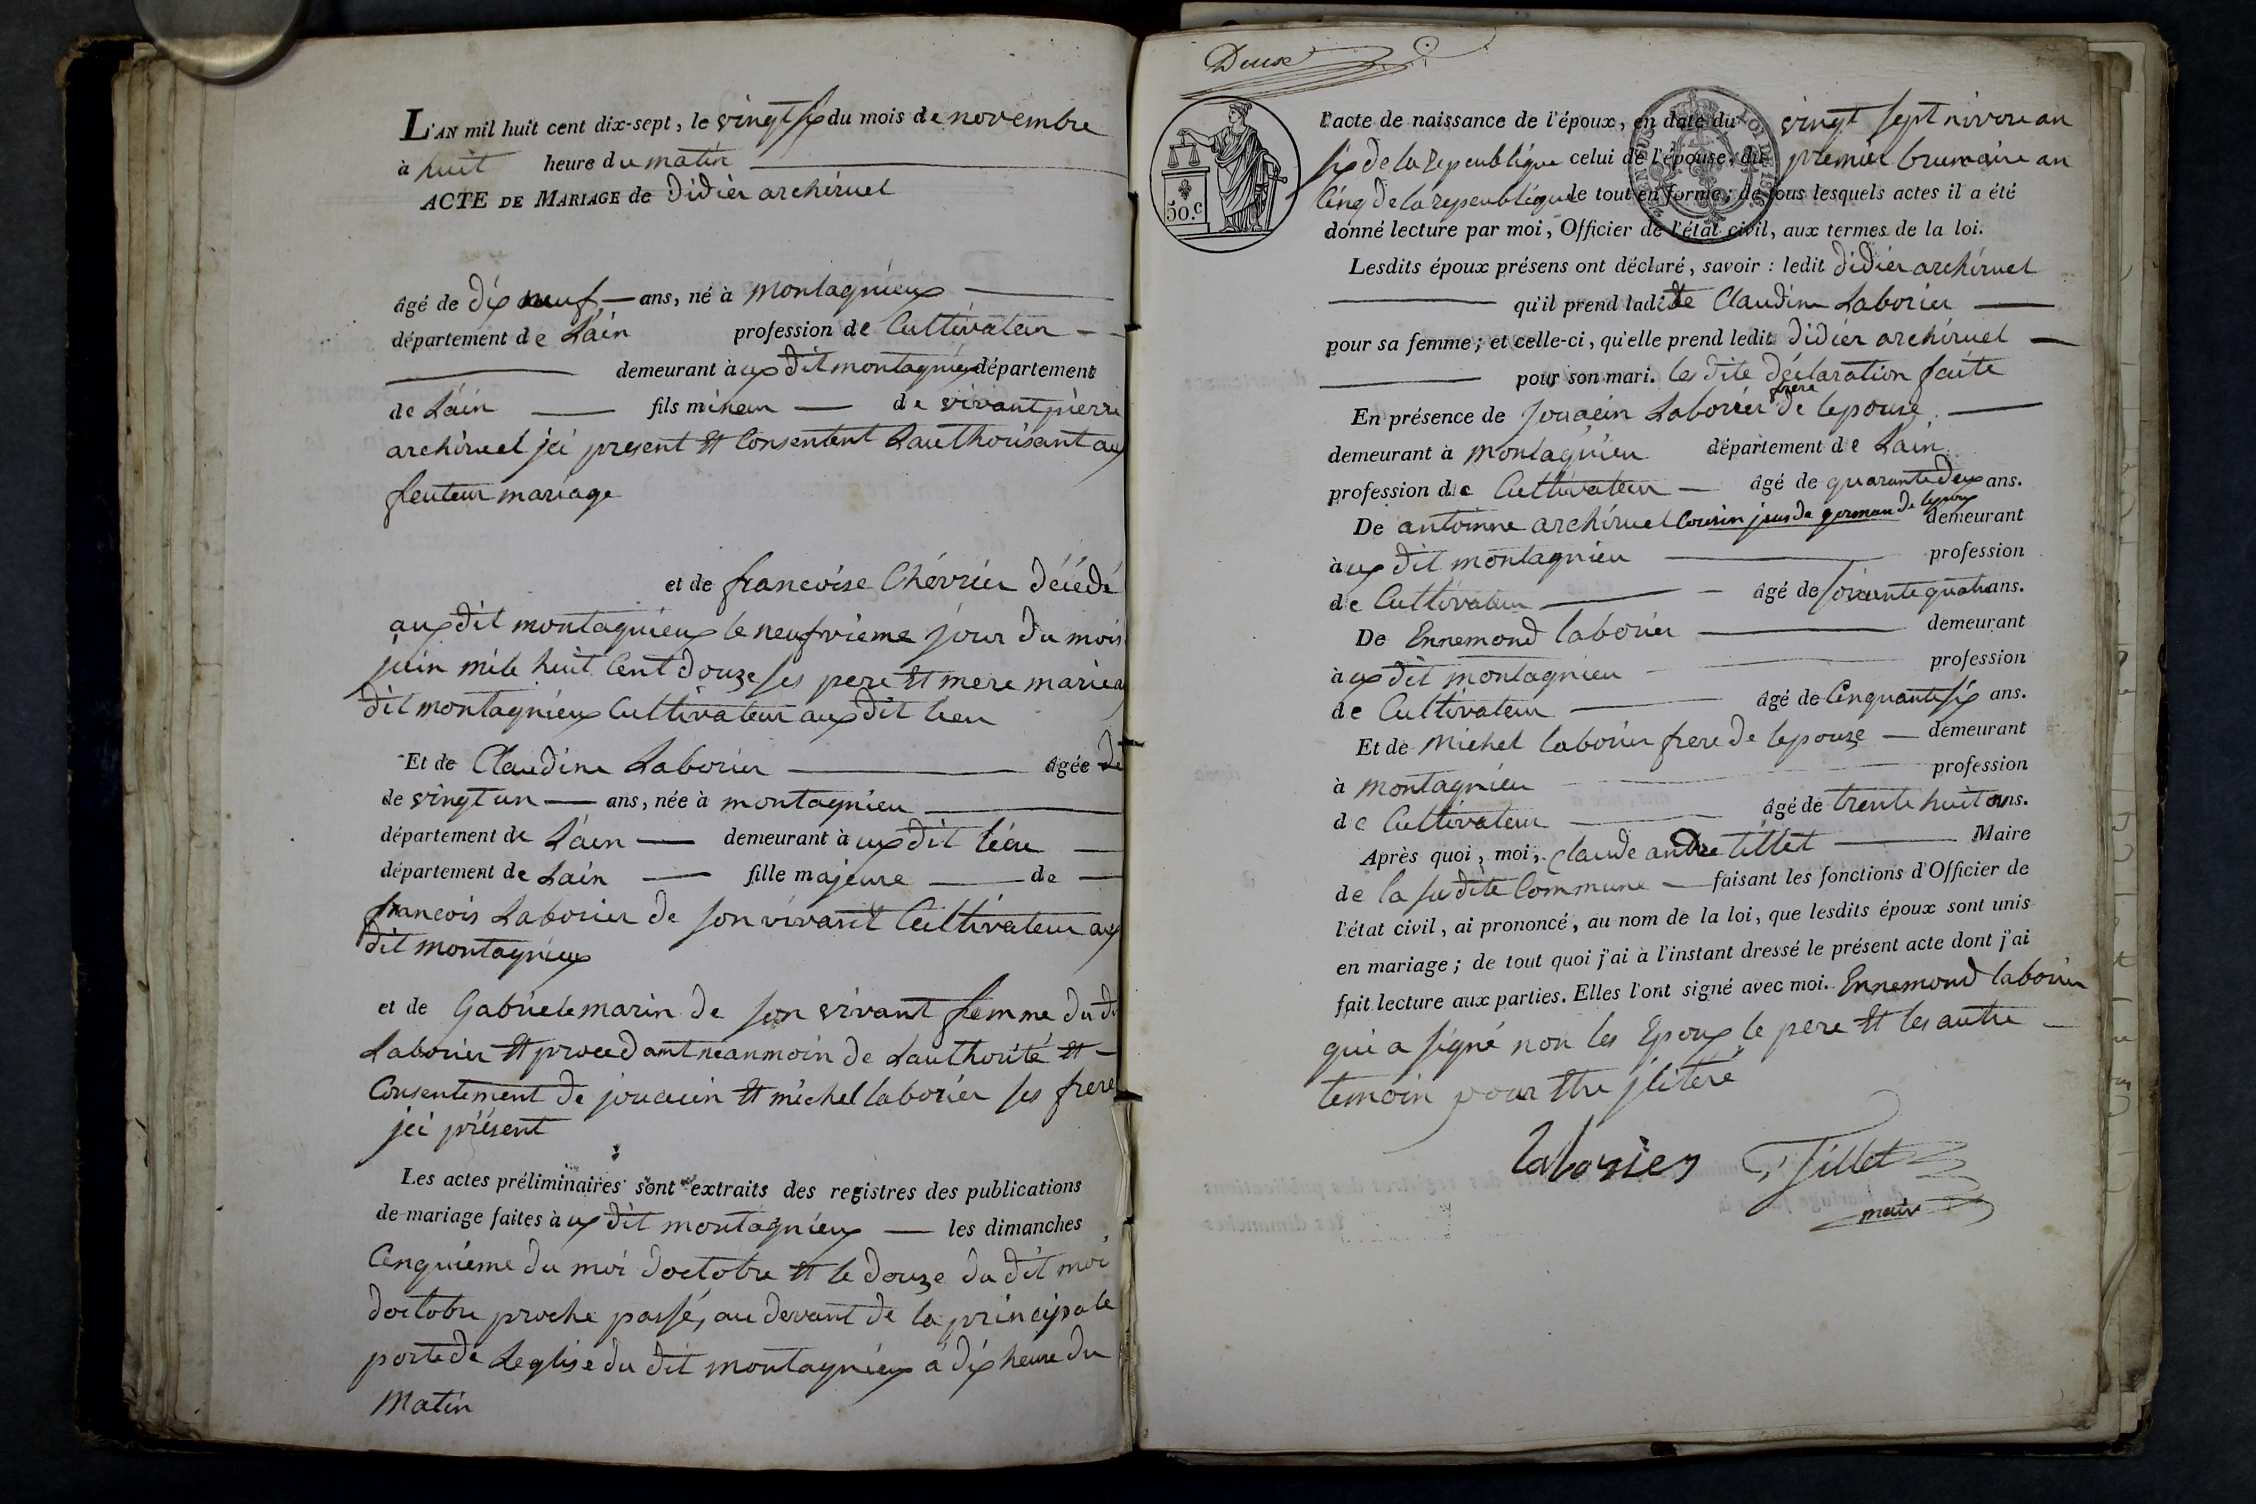 L'AN mil huit cent dix-sept, le vingt six du mois de novembre
à huit heure du matin
ACTE DE MARIAGE de didier archiruel
âgé de dix neuf ans, né à montagnieux
département de Lain profession de Cultivateur
demeurant à ux dit montagnieux département
de Lain fils mineur de vivant pierre
archiruel ici present et Consentent Lauthorisant aux
feuteur mariage
et de francoise Chévrier décédé
aux dit montagnieux le neufvieme jour du mois
juin mile huit Cent douze ses pere et mere marié a
dit montagnieux Cultivateur aux dit lieu
Et de Claudine Laborier âgée de
de vingt un ans, née à montagnieu
département de Lain demeurant à ux dit lieu
département de Lain fille majeure de
francois Laborier de son vivant Cultivateur aux
dit montagnieux
et de Gabriele marin de son vivant femme du di
Laborier et procedant neanmoin de Lauthorité et
Consentement de jouacin et michel laborier ses frere
jci présent
Les actes préliminaires sont extraits des registres des publications
de mariage faites à ux dit montagnieux les dimanches
Cenquieme du moi doctobre et le douze du dit moi
doctobre proche passé, au devant de la principale
porte de Leglise du dit montagnieux a dix heure du
Matin
Deux
50.c
l'acte de naissance de l'époux, en date du vingt sept nivose an
six de la republique celui de l'épouse, du premier brumaire an
Cinq de la republique le tout en forme; de tous lesquels actes il a été
donné lecture par moi, Officier de l'état civil, aux termes de la loi.
Lesdits époux présens ont déclaré, savoir : ledit didier archiruel
qu'il prend ladite Claudine Laborier
pour sa femme; et celle-ci, qu'elle prend ledit didier archiruel
pour son mari. les dite déclaration faite
En présence de Jouacin Laborier frere de lepouze
demeurant à montagnieu département de Lain
profession de Cultivateur âgé de quarante deux ans.
De antoinne archiruel Cousin jeus de german de lepoux demeurant
à ux dit montagnieu profession
de Cultivateur âgé de soixante quatre ans.
De Ennemond laborier demeurant
à ux dit montagnieu profession
de Cultivateur âgé de Cenquante six ans.
Et de Michel laborier frere de lepouze demeurant
à montagnieu profession
de Cultivateur âgé de trente huit ans.
Après quoi, moi, Claude andre tillet Maire
de la su dite Commune faisant les fonctions d'Officier de
l'état civil, ai prononcé, au nom de la loi, que lesdits époux sont unis
en mariage; de tout quoi j'ai à l'instant dressé le présent acte dont j'ai
fait lecture aux parties. Elles l'ont signé avec moi. Ennemond laborier
qui a signé non les Epoux le pere et les autre
temoin pour etre jlitere
laborier Tillet
maire